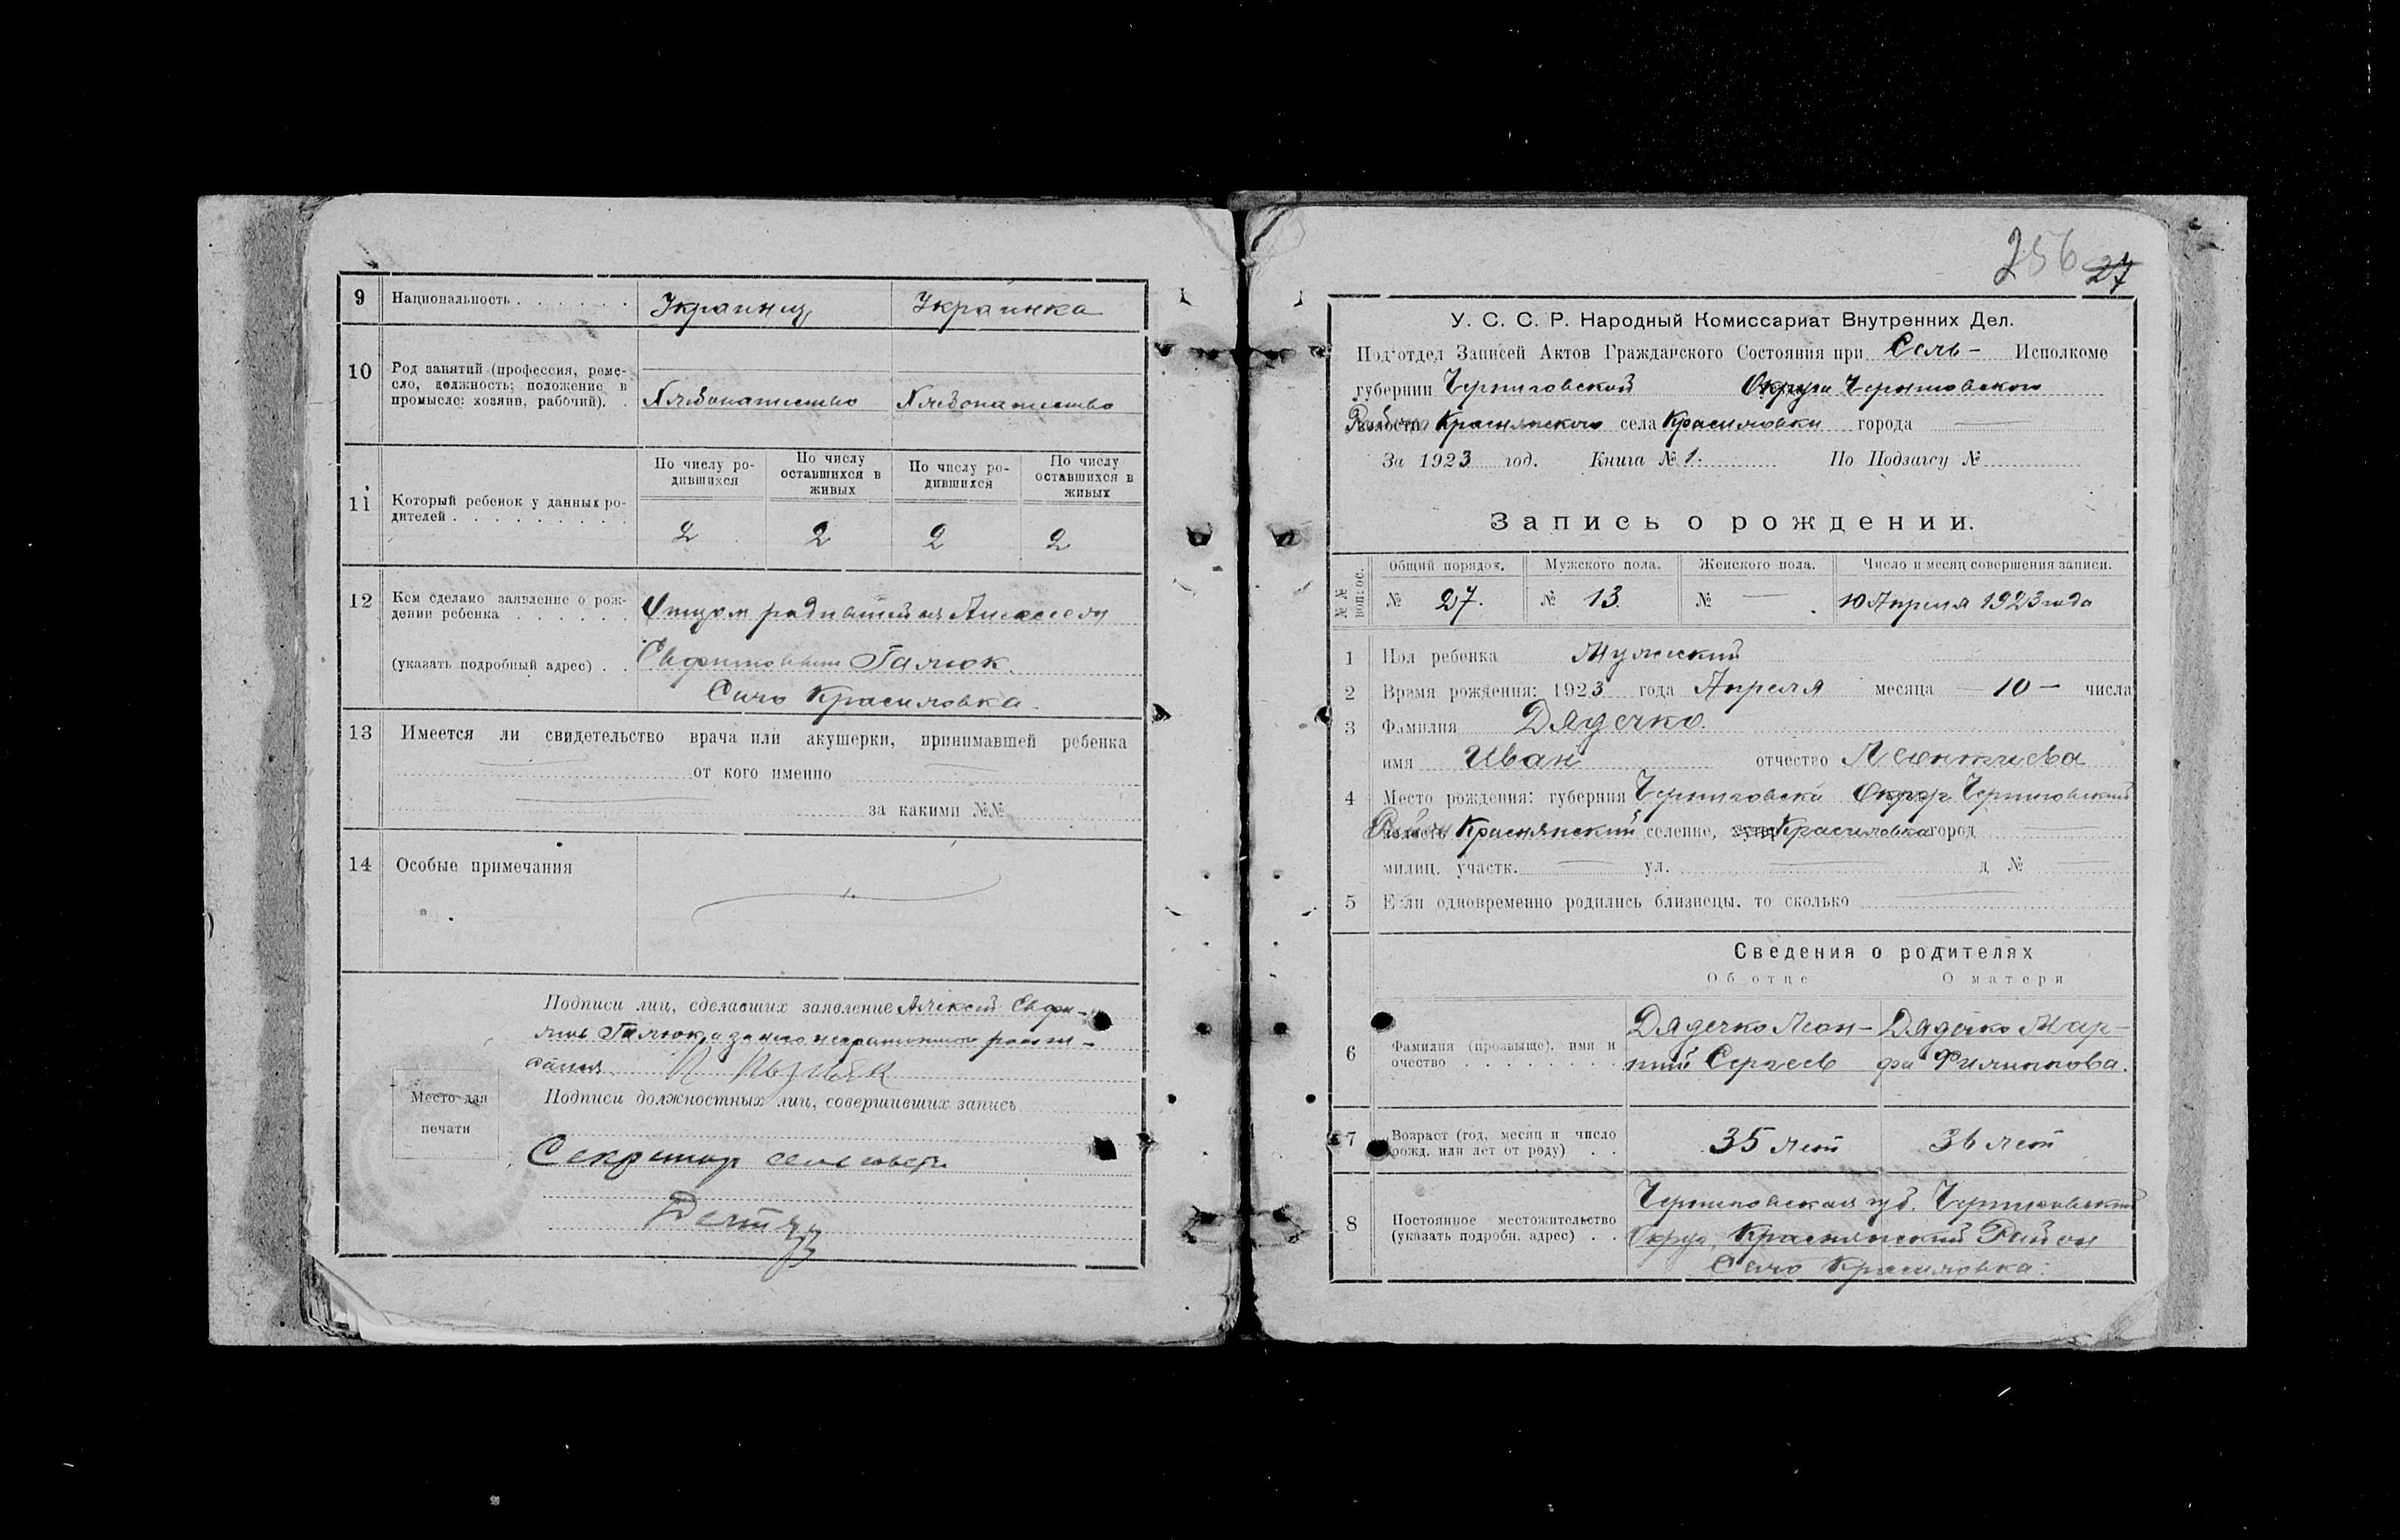 9 Национальность . . . . . . Украинец Украинка
10 Род занятий (профессия, реме-
сло, должность; положение в
промысле: хозяин, рабочий). . Хлебопашество Хлебопашество
11 Который ребенок у данных ро-
дителей . . . . . . . . .
По числу ро-
дившихся
По числу
оставшихся в
живых
По числу ро-
дившихся
По числу
оставшихся в
живых
2 2 2 2
12 Кем сделано заявление о рож-
дении ребенка . . . . . . Отцом родившейся Алексеем
(указать подробный адрес) . . Евфимовым Галюк.
Село Красиловка.
13 Имеется ли свидетельство врача или акушерки, принимавшей ребенка
от кого именно
за какими №№
14 Особые примечания
Подписи лиц, сделавших заявление Алексей Евфи-
мов Галюк, а за него неграмотного роспи-
сался
Подписи должностных лиц, совершивших запись
Место для
печати
Секретар сельсовета
256 27
У. С. С. Р. Народный Комиссариат Внутренних Дел.
Подотдел Записей Актов Гражданского Состояния при Сель- Исполкоме
губернии Черниговской Округи Черниговского
волости Краснянского села Красиловки города
За 1923 год. Книга № 1. По Подзагсу №
Запись о рождении.
№№ вопрос.
Общий порядок. Мужского пола. Женского пола. Число и месяц совершения записи.
№ 27. № 13. № — 10 Апреля 1923 года
1 Пол ребенка Мужеский
2 Время рождения: 1923 года Апреля месяца — 10 — числа
3 Фамилия Дядечко.
имя Иван отчество Леонтиева
4 Место рождения: губерния Черниговская Округ Черниговский
волость Краснянский селение, Красиловка город
милиц. участк. ул. д №
5 Если одновременно родились близнецы, то сколько
Сведения о родителях
Об отце О матери
6 Фамилия (прозвище), имя и
очество . . . . . . . .
Дядечко Леон-
тий Сергеев
Дядечко Мар-
фа Филиппова.
7 Возраст (год, месяц и число
рожд. или лет от роду) . . 35 лет 36 лет
8 Постоянное местожительство
(указать подробн. адрес) . .
Черниговская губ. Черниговский
Округ, Краснянский Район
Село Красиловка.